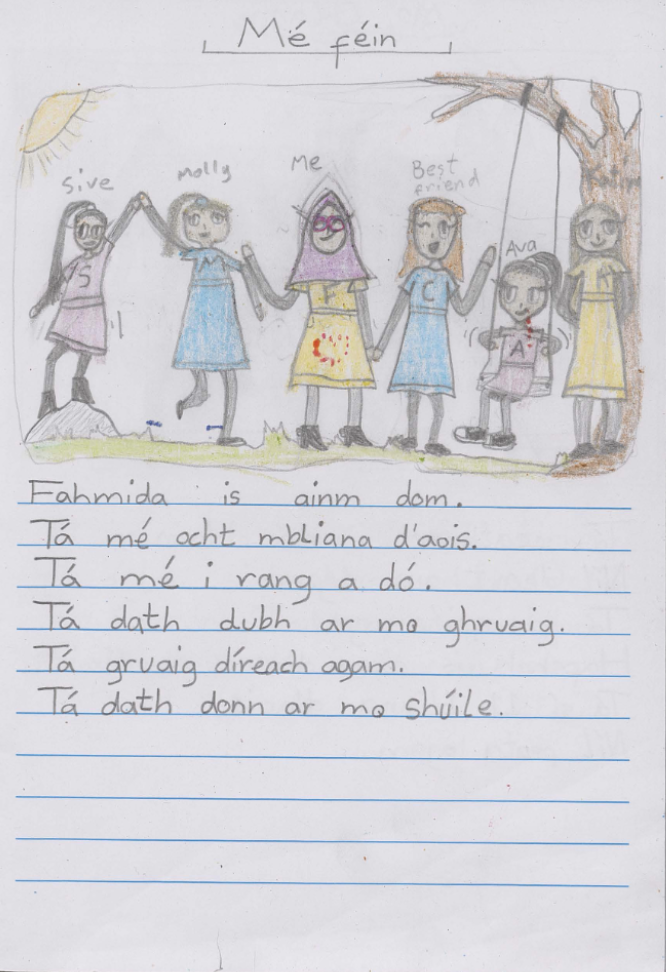 Mé féin
Sive
Molly
Me
Best
friend
Ava
S
M
F
C
A
Fahmida is ainm dom.
Tá mé ocht mbliana d'aois.
Tá mé i rang a dó.
Tá dath dubh ar mo ghruaig.
Tá gruaig díreach agam.
Tá dath donn ar mo shúile.